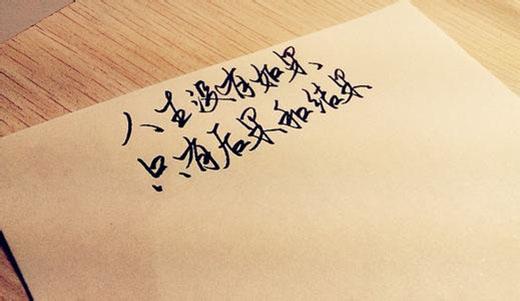 人生没有如果、
只有后果和结果